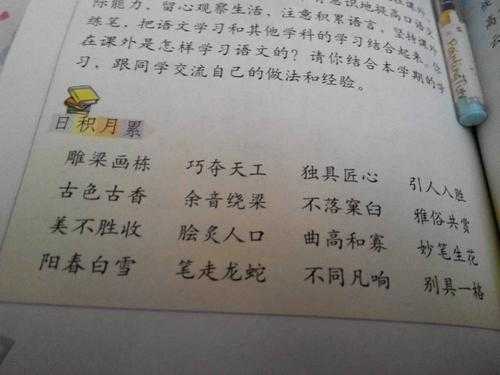 际能力，留心观察生活，注意积累语言，坚持课外
练笔，把语文学习和其他学科的学习结合起来。你
在课外是怎样学习语文的？请你结合本学期的学
习，跟同学交流自己的做法和经验。
日积月累
雕梁画栋 巧夺天工 独具匠心 引人入胜
古色古香 余音绕梁 不落窠臼 雅俗共赏
美不胜收 脍炙人口 曲高和寡 妙笔生花
阳春白雪 笔走龙蛇 不同凡响 别具一格